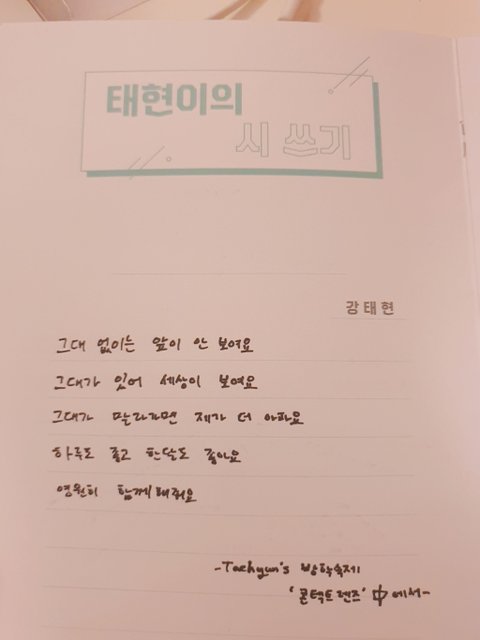 태현이의
시 쓰기
강태현
그대 없이는 앞이 안 보여요
그대가 있어 세상이 보여요
그대가 말라가면 제가 더 아파요
하루도 좋고 한달도 좋아요
영원히 함께해줘요
-Taehyun's 방학숙제
'콘택트렌즈' 中에서-